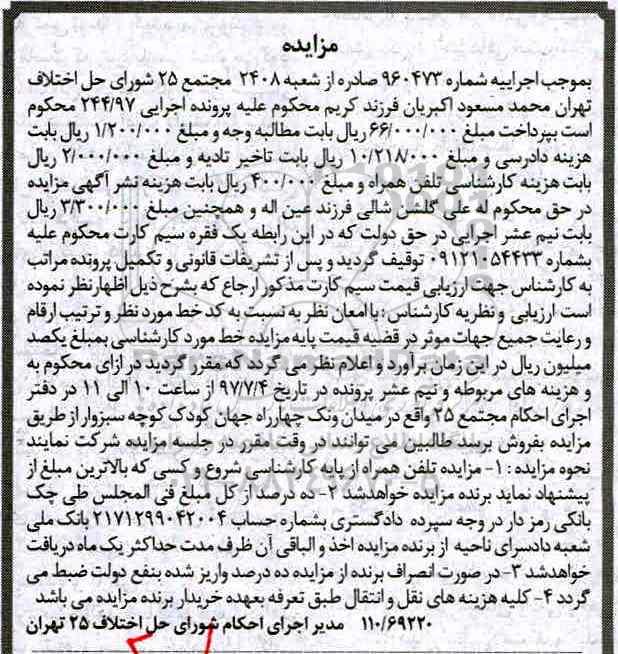 مزایده
بموجب اجراییه شماره ۹۶۰۴۷۳ صادره از شعبه ۲۴۰۸ مجتمع ۲۵ شورای حل اختلاف
تهران محمد مسعود اکبریان فرزند کریم محکوم علیه پرونده اجرایی ۲۴۴/۹۷ محکوم
است بپرداخت مبلغ ۶۶/۰۰۰/۰۰۰ ریال بابت مطالبه وجه و مبلغ ۱/۲۰۰/۰۰۰ ریال بابت
هزینه دادرسی و مبلغ ۱۰/۲۱۸/۰۰۰ ریال بابت تاخیر تادیه و مبلغ ۲/۰۰۰/۰۰۰ ریال
بابت هزینه کارشناسی تلفن همراه و مبلغ ۴۰۰/۰۰۰ ریال بابت هزینه نشر آگهی مزایده
در حق محکوم له علی گلشن شالی فرزند عین اله و همچنین مبلغ ۳/۳۰۰/۰۰۰ ریال
بابت نیم عشر اجرایی در حق دولت که در این رابطه یک فقره سیم کارت محکوم علیه
بشماره ۰۹۱۲۱۰۵۴۴۳۳ توقیف گردید و پس از تشریفات قانونی و تکمیل پرونده مراتب
به کارشناس جهت ارزیابی قیمت سیم کارت مذکور ارجاع که بشرح ذیل اظهارنظر نموده
است ارزیابی و نظریه کارشناس: با امعان نظر به نسبت به کد خط مورد نظر و ترتیب ارقام
و رعایت جمیع جهات موثر در قضیه قیمت پایه مزایده خط مورد کارشناسی بمبلغ یکصد
میلیون ریال در این زمان برآورد و اعلام نظر می گردد که مقرر گردید در ازای محکوم به
و هزینه های مربوطه و نیم عشر پرونده در تاریخ ۹۷/۷/۴ از ساعت ۱۰ الی ۱۱ در دفتر
اجرای احکام مجتمع ۲۵ واقع در میدان ونک چهارراه جهان کودک کوچه سبزوار از طریق
مزایده بفروش برسد طالبین می توانند در وقت مقرر در جلسه مزایده شرکت نمایند
نحوه مزایده : ۱- مزایده تلفن همراه از پایه کارشناسی شروع و کسی که بالاترین مبلغ از
پیشنهاد نماید برنده مزایده خواهدشد ۲- ده درصد از کل مبلغ فی المجلس طی چک
بانکی رمز دار در وجه سپرده دادگستری بشماره حساب ۲۱۷۱۲۹۹۰۴۲۰۰۴ بانک ملی
شعبه دادسرای ناحیه از برنده مزایده اخذ و الباقی آن ظرف مدت حداکثر یک ماه دریافت
خواهدشد ۳- در صورت انصراف برنده از مزایده ده درصد واریز شده بنفع دولت ضبط می
گردد ۴- کلیه هزینه های نقل و انتقال طبق تعرفه بعهده خریدار برنده مزایده می باشد
۱۱۰/۶۹۲۲۰ مدیر اجرای احکام شورای حل اختلاف ۲۵ تهران